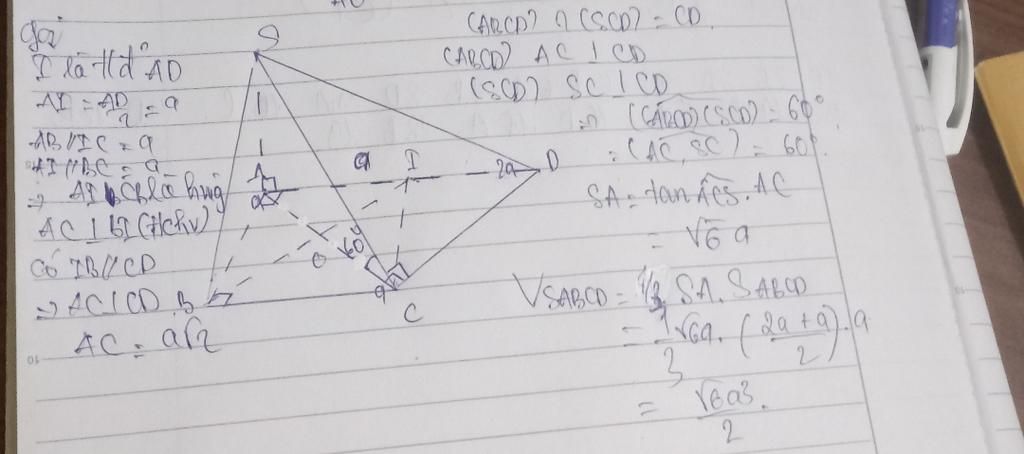 Gọi
I là tđ AD
AI = AD/2 = a
AB // IC = a
AI // BC = a
⇒ AI
AC ⊥ BI (tchv)
Có IB // CD
⇒ AC ⊥ CD
AC = a√2
S
A
a
I
2a
D
B
O
60
a
C
(ABCD) ∩ (SCD) = CD
(ABCD) AC ⊥ CD
(SCD) SC ⊥ CD
⇒ (ABCD)(SCD) = 60°
= (AC, SC) = 60°.
SA = tan ACS . AC
= √6 a
VSABCD = 1/3 SA . SABCD
= 1/3 √6a . (2a+a/2) . a
= √6a³/2 .